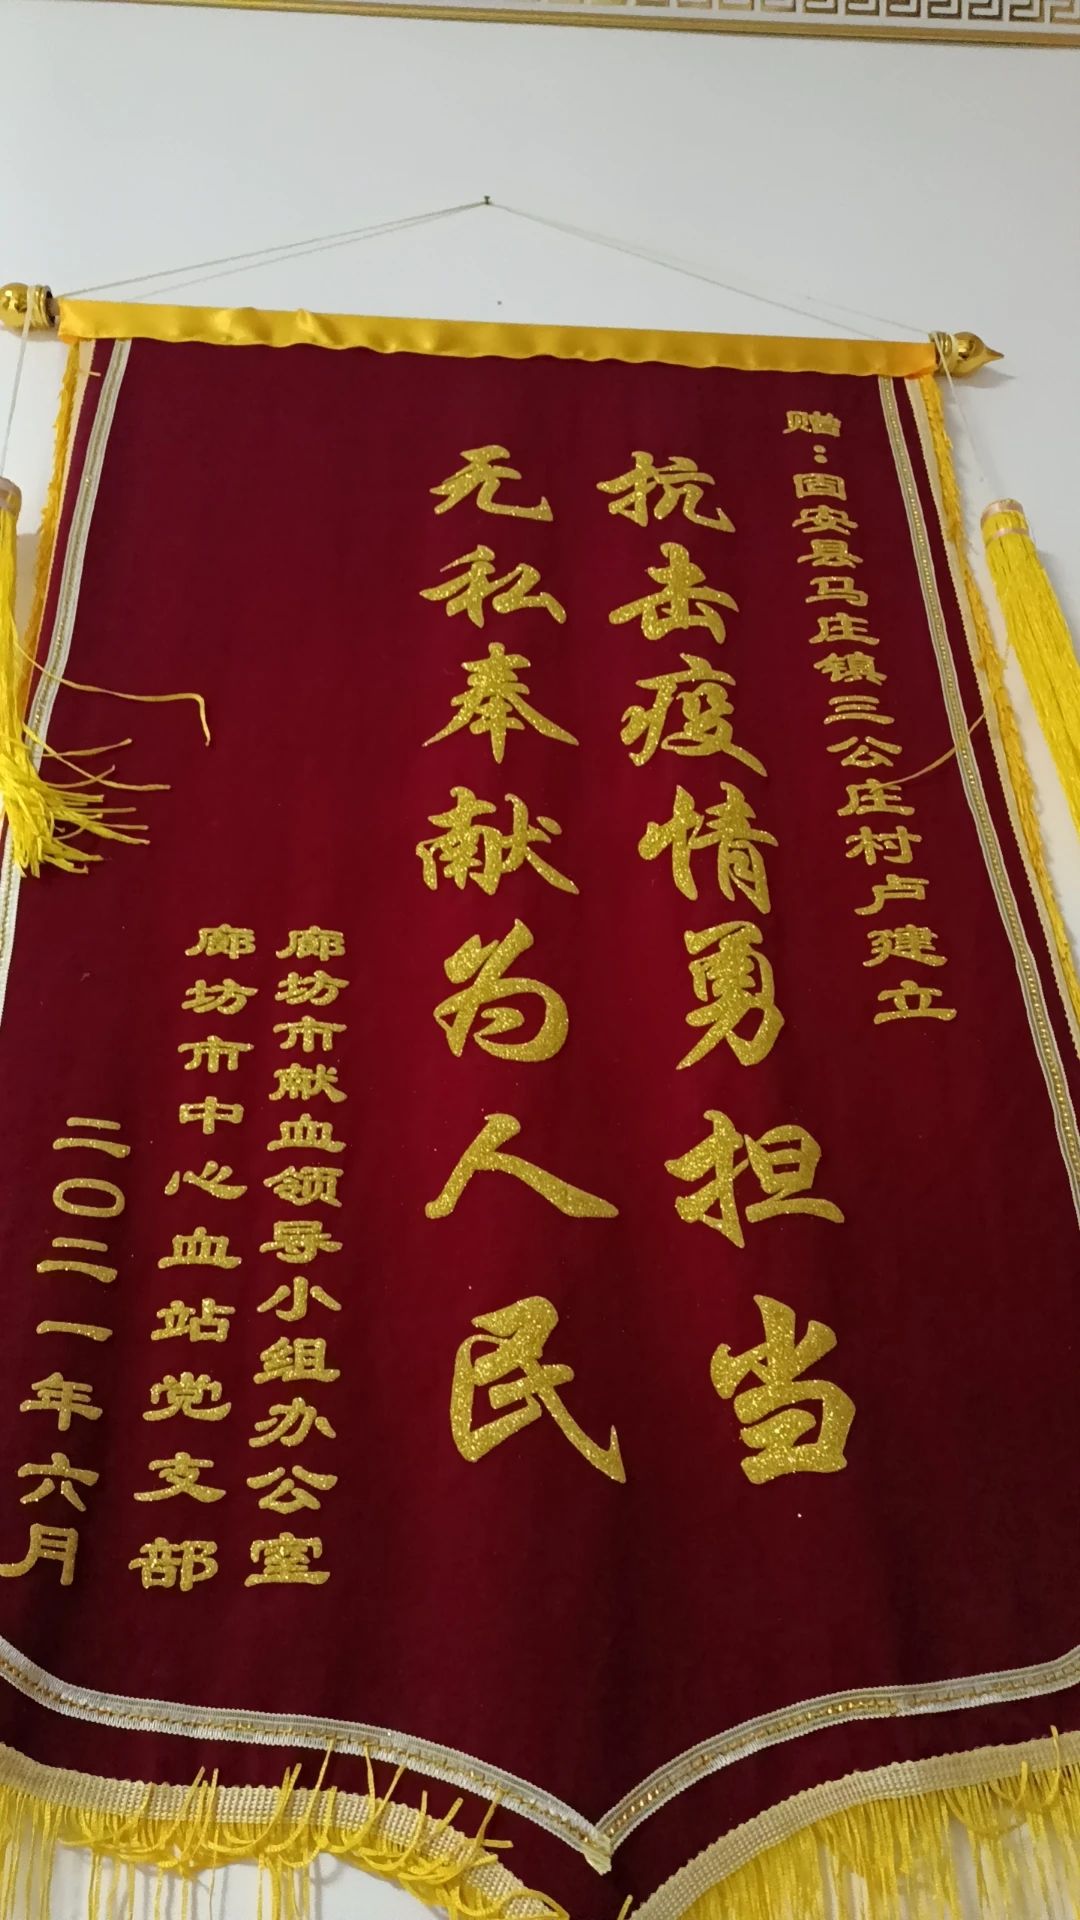 赠：固安县马庄镇三公庄村卢建立
抗击疫情勇担当
无私奉献为人民
廊坊市献血领导小组办公室
廊坊市中心血站党支部
二〇二一年六月